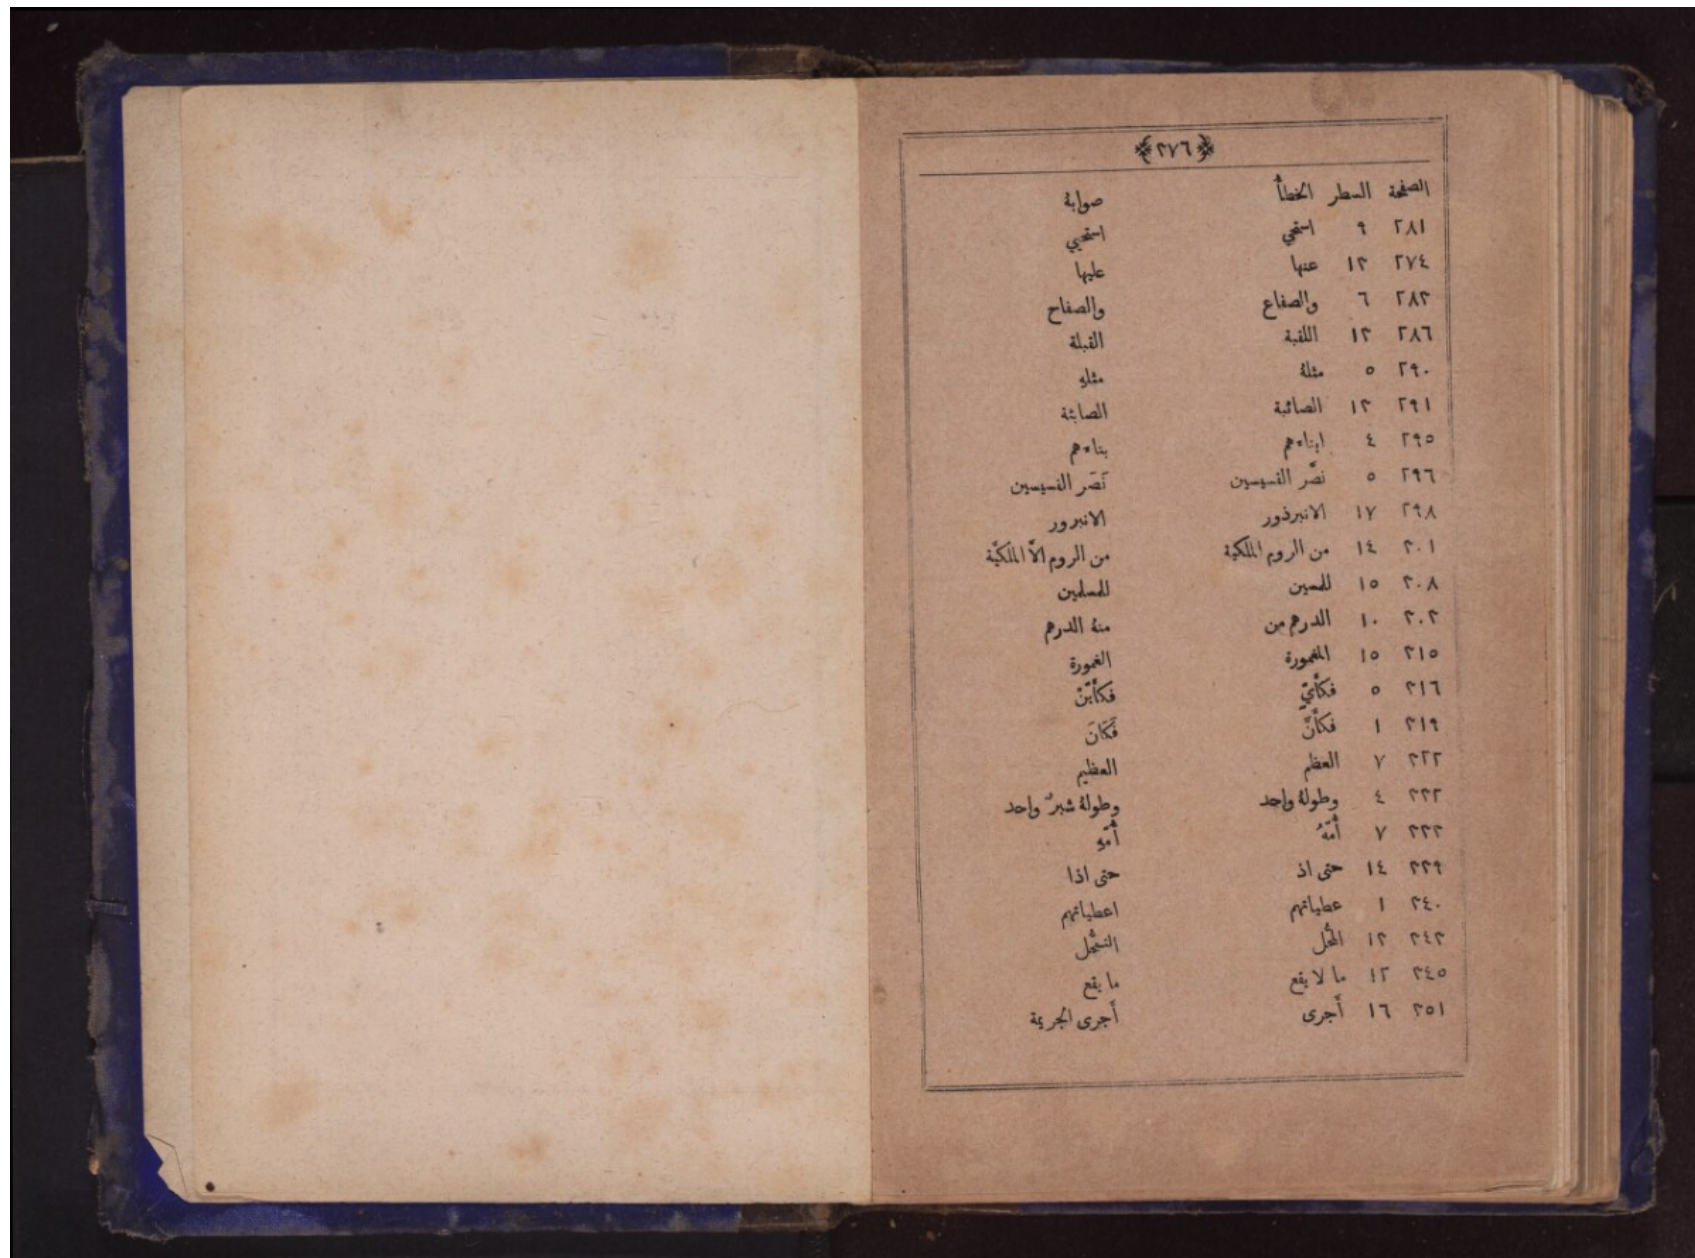 ﴿٣٧٦﴾
الصفحة السطر الخطأُ صوابهُ
٢٨١ ٩ استحي استحيي
٢٧٤ ١٣ عنها عليها
٢٨٣ ٦ والصفاع والصفاح
٢٨٦ ١٣ اللقبة القبلة
٢٩٠ ٥ مثلهُ مثلهِ
٢٩١ ١٣ الصائبة الصابئة
٢٩٥ ٤ ابناءهم بناءهم
٢٩٦ ٥ نصَّر القسيسين نَصَر القسيسين
٢٩٨ ١٧ الانبرذور الانبرور
٣٠١ ١٤ من الروم الملكية من الروم الاَّ الملكيَّة
٣٠٨ ١٥ للمسين للمسلمين
٣٠٣ ١٠ الدرهم من منهُ الدرهم
٣١٥ ١٥ المغمورة الغمورة
٣١٦ ٥ فكأَيّ فكأَيّنْ
٣١٩ ١ فكأَنَّ فَكَانَ
٣٢٢ ٧ العظم العظيم
٣٢٣ ٤ وطولهُ واحد وطولهُ شبرٌ واحد
٣٢٣ ٧ أُمَّهُ أُمّهِ
٣٢٩ ١٤ حتى اذ حتى اذا
٣٤٠ ١ عطياتهم اعطياتهم
٣٤٣ ١٣ المحُّل التمحُّل
٣٤٥ ١٢ ما لا يقع ما يقع
٣٥١ ١٦ أَجرى أَجرى الجريمة